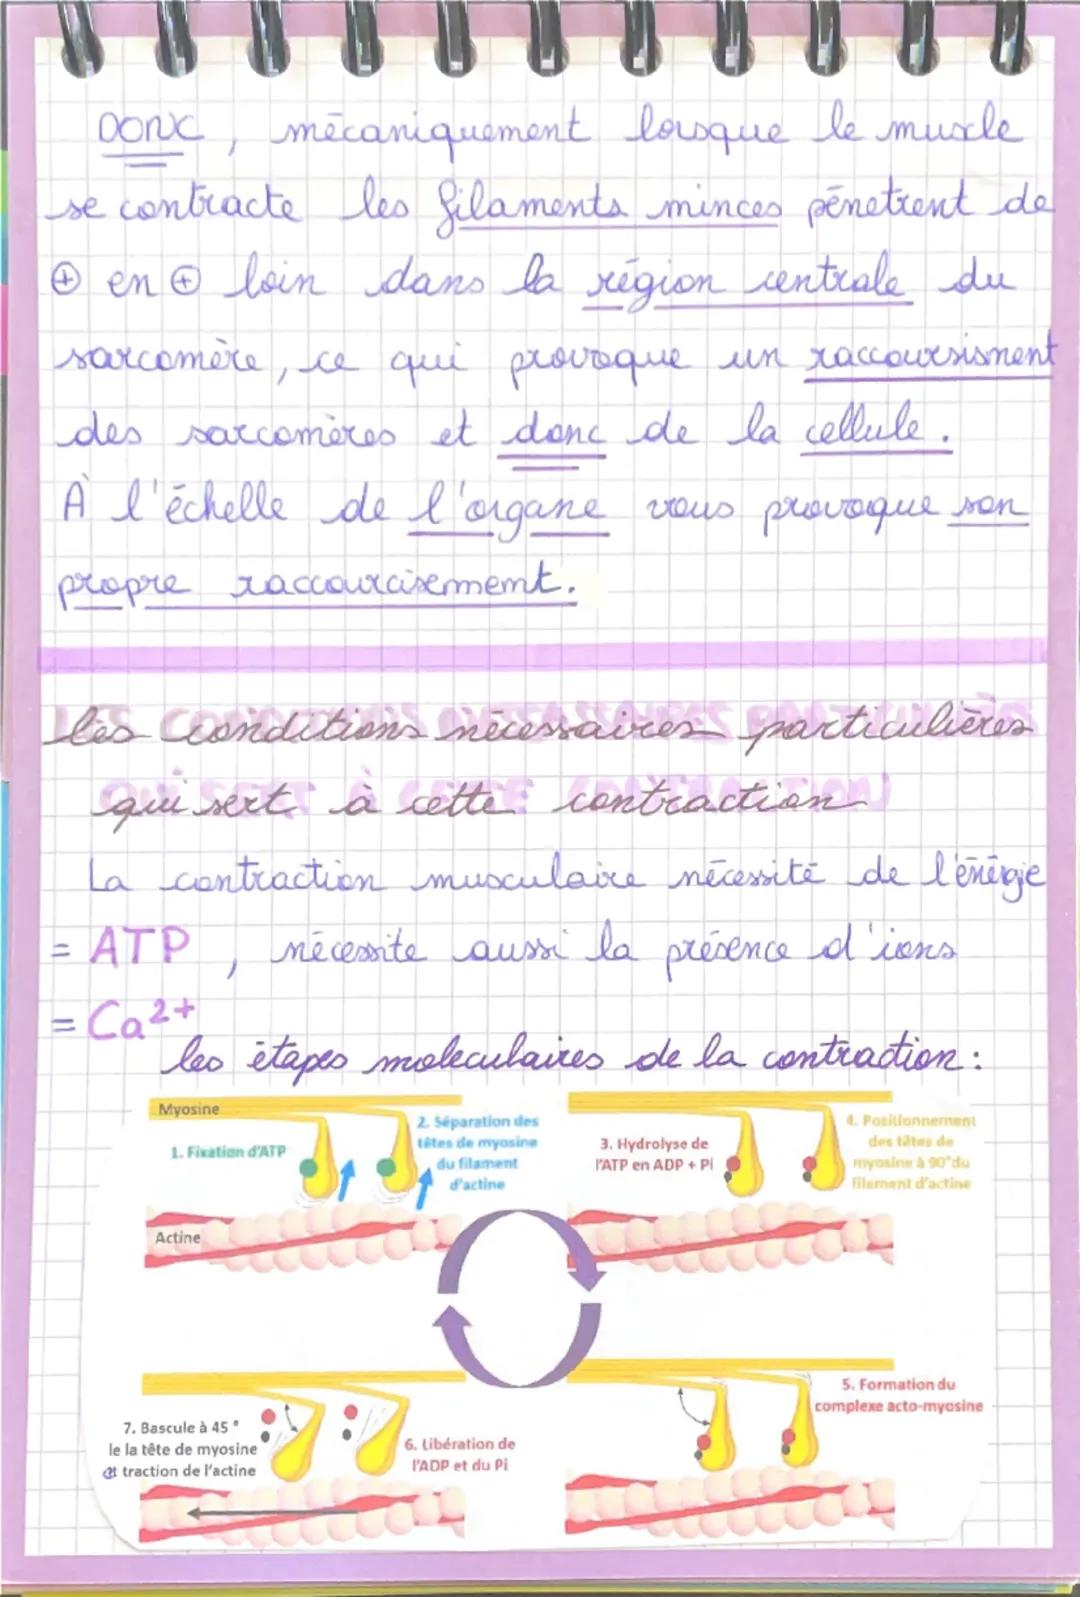 DONC, mécaniquement lorsque le muscle
se contracte les filaments minces pénetrent de
⊕ en ⊕ loin dans la région centrale du
sarcomère, ce qui provoque un raccoursisment
des sarcomères et donc de la cellule.
À l'échelle de l'organe vous provoque son
propre raccourcisemment.
les conditions nécessaires particulières
qui sert à cette contraction
La contraction musculaire nécessité de l'énérgie
= ATP, nécessite aussi la présence d'ions
= Ca²⁺
les étapes moleculaires de la contraction :
Myosine
1. Fixation d'ATP
2. Séparation des
têtes de myosine
du filament
d'actine
Actine
3. Hydrolyse de
l'ATP en ADP + Pi
4. Positionnement
des têtes de
myosine à 90°du
filament d'actine
5. Formation du
complexe acto-myosine
6. Libération de
l'ADP et du Pi
7. Bascule à 45 °
le la tête de myosine
et traction de l'actine